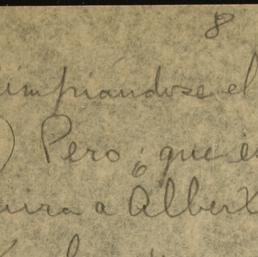 8
impiándose el
) Pero ¿que es
uira a Albert